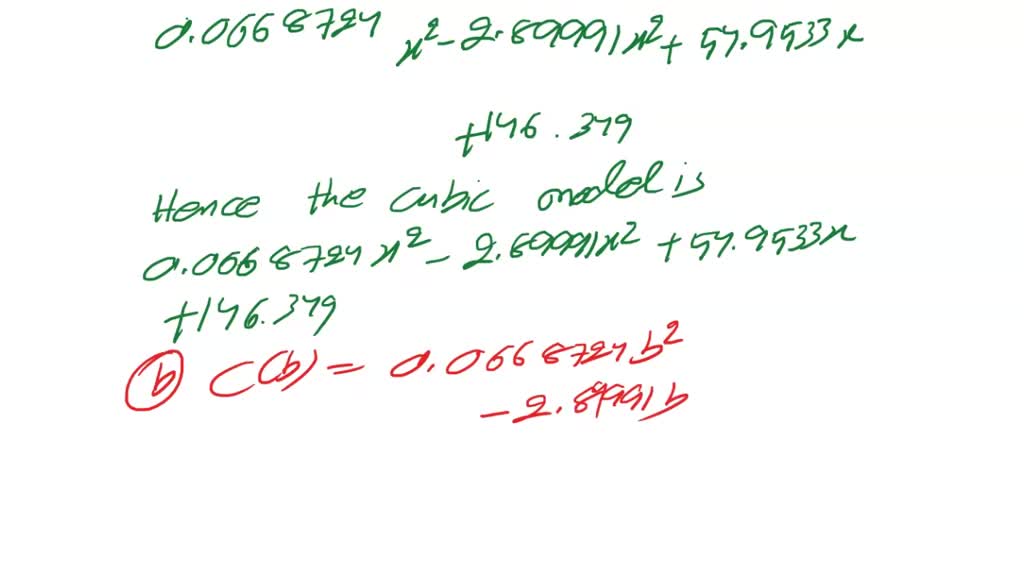 0.0668724 x² - 2.89991x² + 54.9533x
+146.379
Hence the cubic model is
0.0668724x² - 2.89991x² + 54.9533x
+146.379
(b) C(b) = 0.0668724b²
- 2.89991b